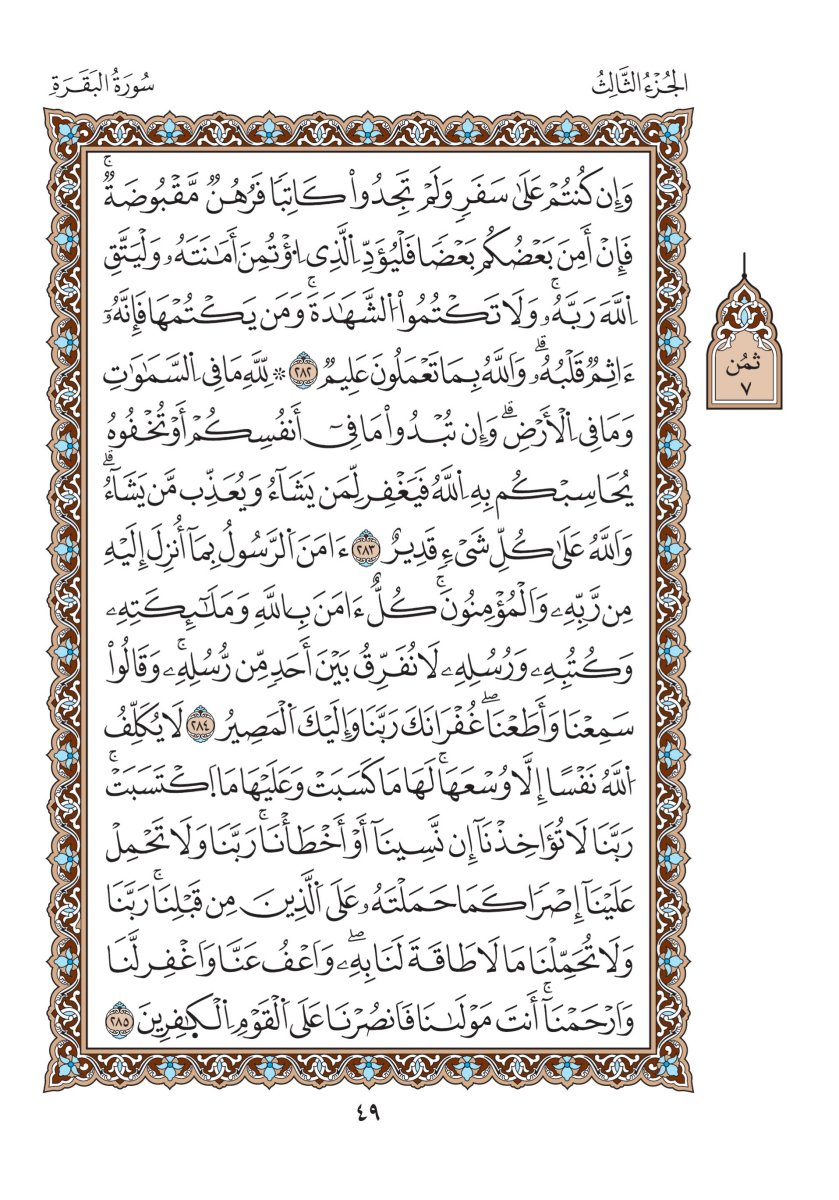 الجُزْءُ الثَّالِثُ
سُورَةُ البَقَرَةِ
وَإِن كُنتُمْ عَلَىٰ سَفَرٍ وَلَمْ تَجِدُواْ كَاتِبًا فَرُهُنٌ مَّقْبُوضَةٌۚ
فَإِنْ أَمِنَ بَعْضُكُم بَعْضًا فَلْيُؤَدِّ اِ۬لَّذِي اِ۟ؤْتُمِنَ أَمَٰنَتَهُۥ وَلْيَتَّقِ
اِ۬للَّهَ رَبَّهُۥۚ وَلَا تَكْتُمُواْ اُ۬لشَّهَٰدَةَۚ وَمَن يَكْتُمْهَا فَإِنَّهُۥٓ
ءَاثِمٌ قَلْبُهُۥۗ وَاَللَّهُ بِمَا تَعْمَلُونَ عَلِيمٌ ٢٨٢ ۞ لِّلَّهِ مَا فِي اِ۬لسَّمَٰوَٰتِ
وَمَا فِي اِ۬لْأَرْضِۗ وَإِن تُبْدُواْ مَا فِيٓ أَنفُسِكُمْ أَوْ تُخْفُوهُ
يُحَاسِبْكُم بِهِ اِ۬للَّهُ فَيَغْفِر لِّمَن يَشَآءُ وَيُعَذِّب مَّن يَشَآءُۗ
وَاَللَّهُ عَلَىٰ كُلِّ شَيْءٍ قَدِيرٌ ٢٨٣ ءَامَنَ اَ۬لرَّسُولُ بِمَآ أُنزِلَ إِلَيْهِ
مِن رَّبِّهِۦ وَاَلْمُؤْمِنُونَۚ كُلٌّ ءَامَنَ بِاللَّهِ وَمَلَٰٓئِكَتِهِۦ
وَكُتُبِهِۦ وَرُسُلِهِۦ لَا نُفَرِّقُ بَيْنَ أَحَدٍ مِّن رُّسُلِهِۦۚ وَقَالُواْ
سَمِعْنَا وَأَطَعْنَاۖ غُفْرَانَكَ رَبَّنَا وَإِلَيْكَ اَ۬لْمَصِيرُ ٢٨٤ لَا يُكَلِّفُ
اُ۬للَّهُ نَفْسًا إِلَّا وُسْعَهَاۚ لَهَا مَا كَسَبَتْ وَعَلَيْهَا مَا اَ۪كْتَسَبَتْۚ
رَبَّنَا لَا تُؤَاخِذْنَآ إِن نَّسِينَآ أَوْ أَخْطَأْنَاۚ رَبَّنَا وَلَا تَحْمِلْ
عَلَيْنَآ إِصْرًا كَمَا حَمَلْتَهُۥ عَلَى اَ۬لَّذِينَ مِن قَبْلِنَاۚ رَبَّنَا
وَلَا تُحَمِّلْنَا مَا لَا طَاقَةَ لَنَا بِهِۦۖ وَاَعْفُ عَنَّا وَاَغْفِر لَّنَا
وَاَرْحَمْنَآۚ أَنتَ مَوْلَىٰنَا فَانصُرْنَا عَلَى اَ۬لْقَوْمِ اِ۬لْكٰفِرِينَ ٢٨٥
ثُمُن
٧
٤٩